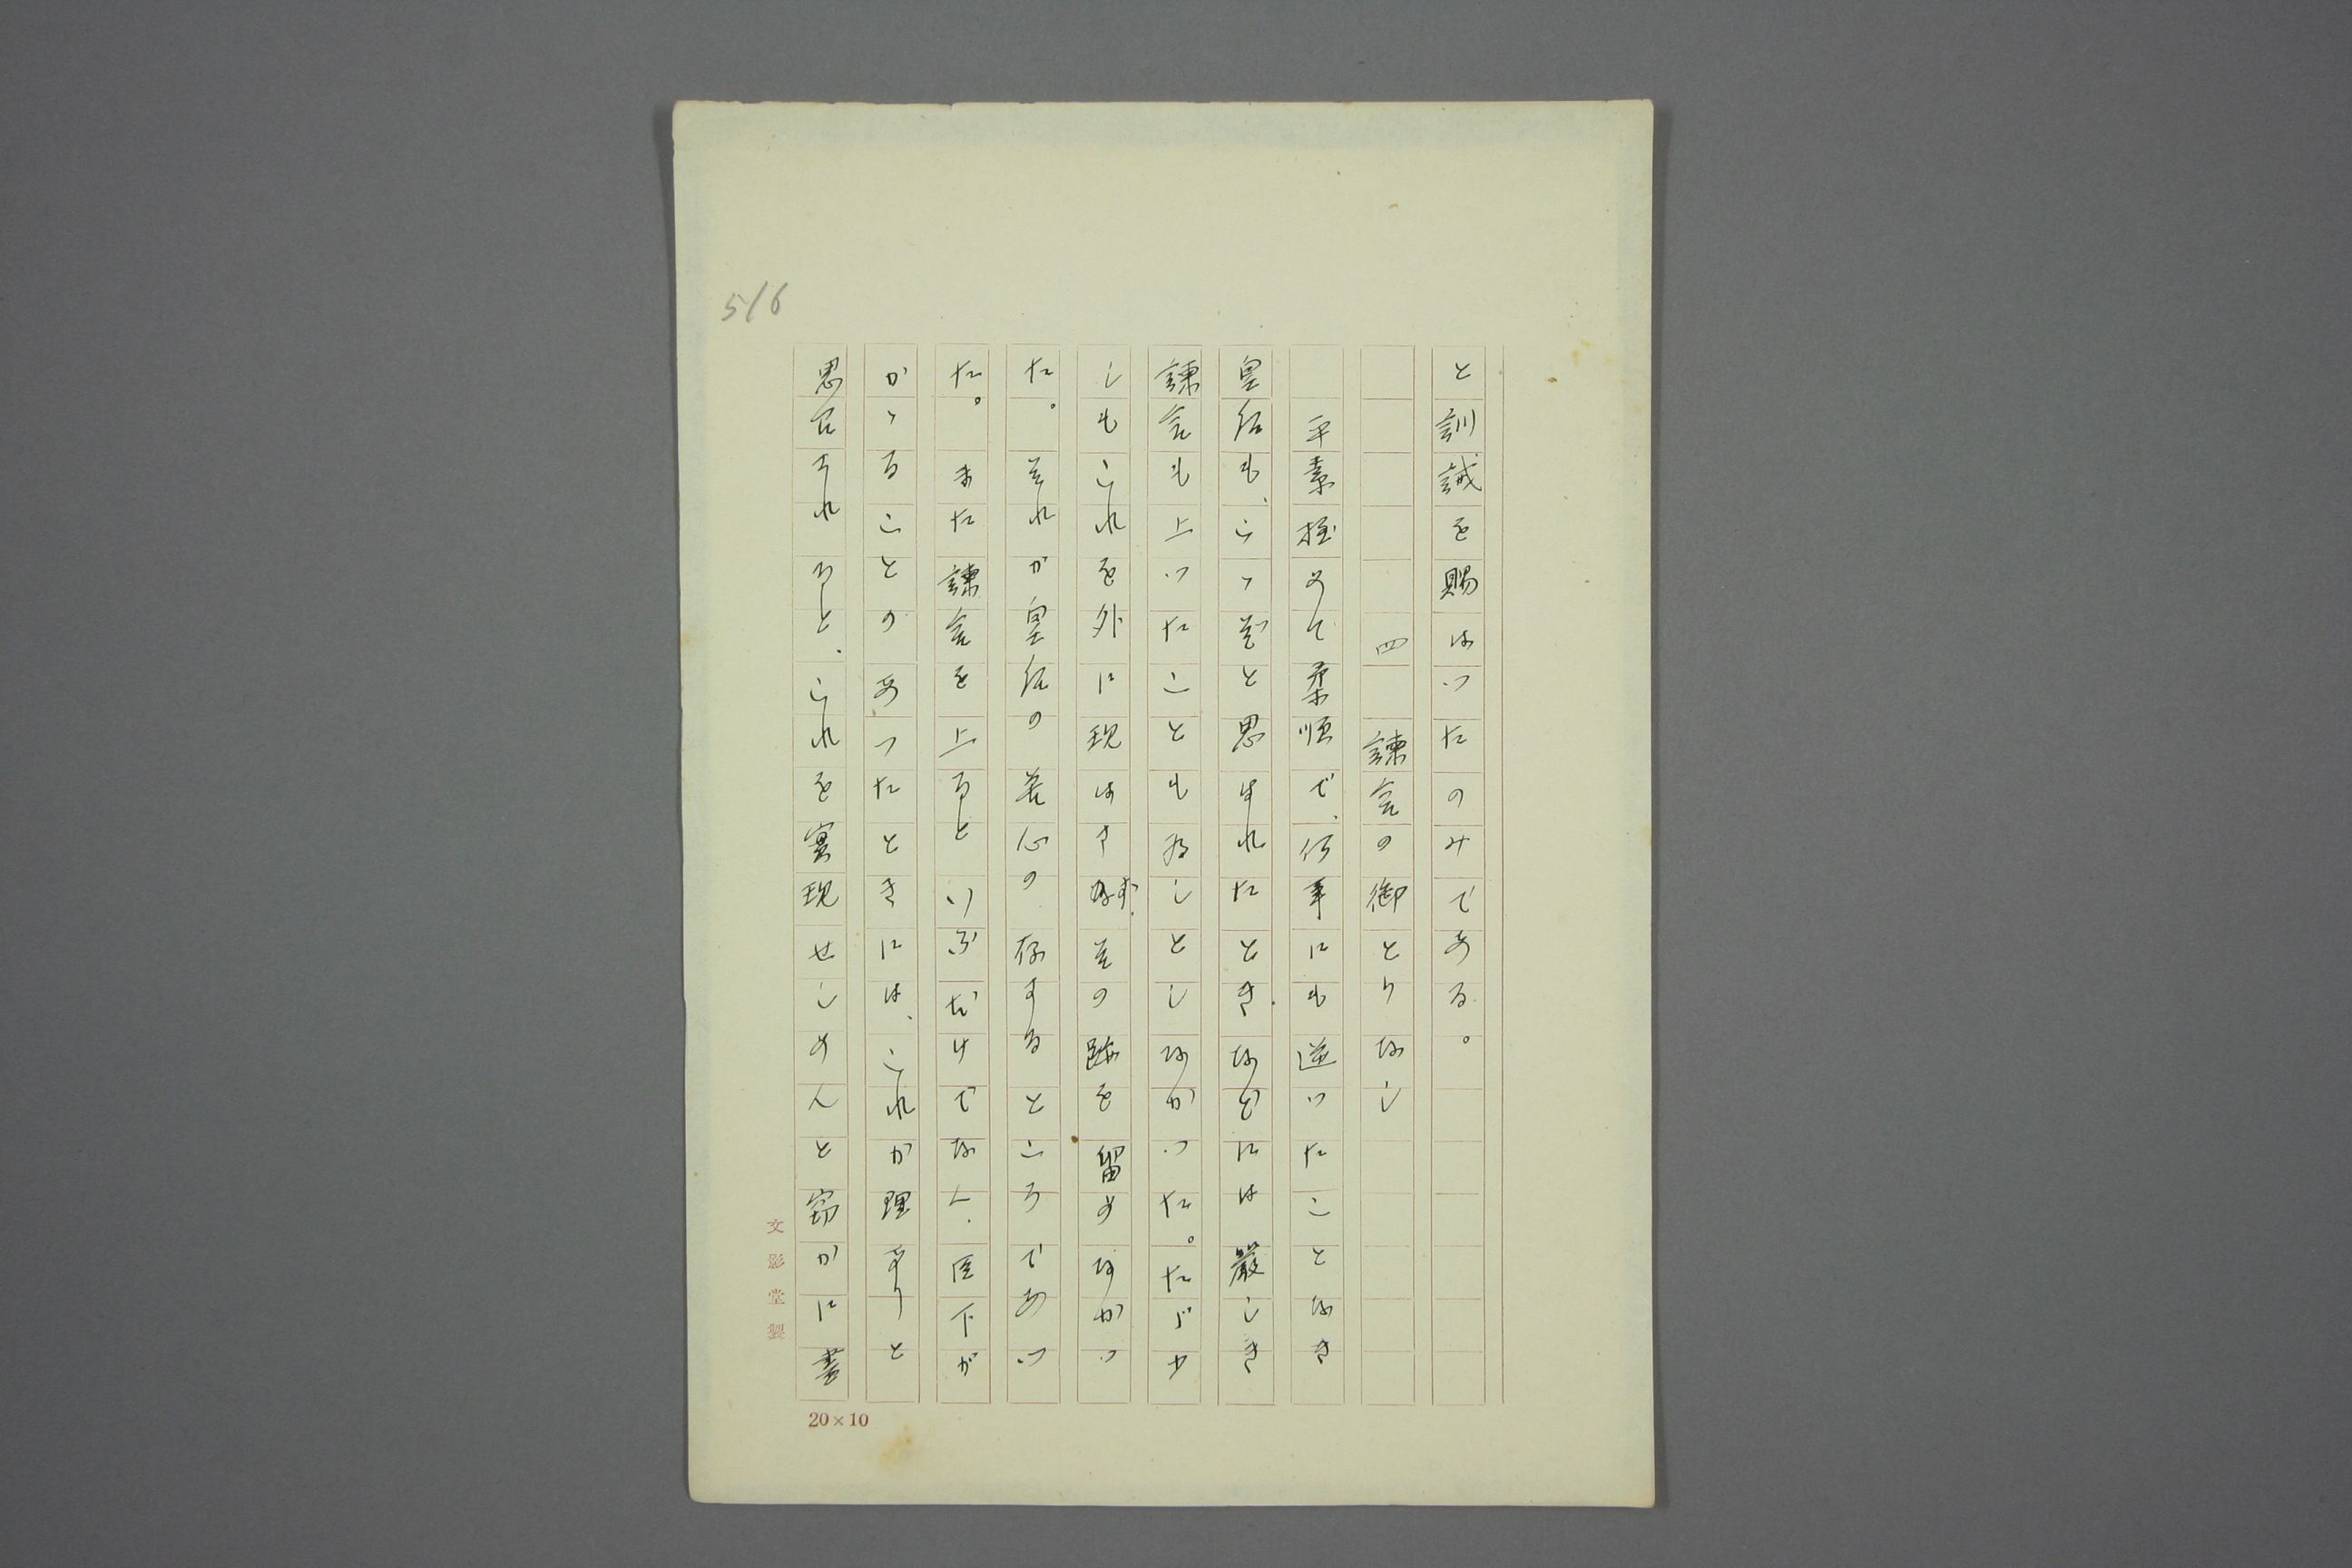 516
と訓誡を賜はつたのみである。
四 諫言の御とりなし
平素極めて柔順で、何事にも逆つたことなき
皇后も、こゝぞと思はれたとき、などには嚴しき
諫言も上つたことも爲しとしなかつた。たゞ少
しもこれを外に現はさず、其の跡を留めなかつ
た。それが皇后の苦心の存するところであつ
た。また諫言を上るといふだけでなく、臣下が
かゝることのあつたときには、これが理ありと
思召されると、これを實現せしめんと窃かに書
文影堂製
20×10